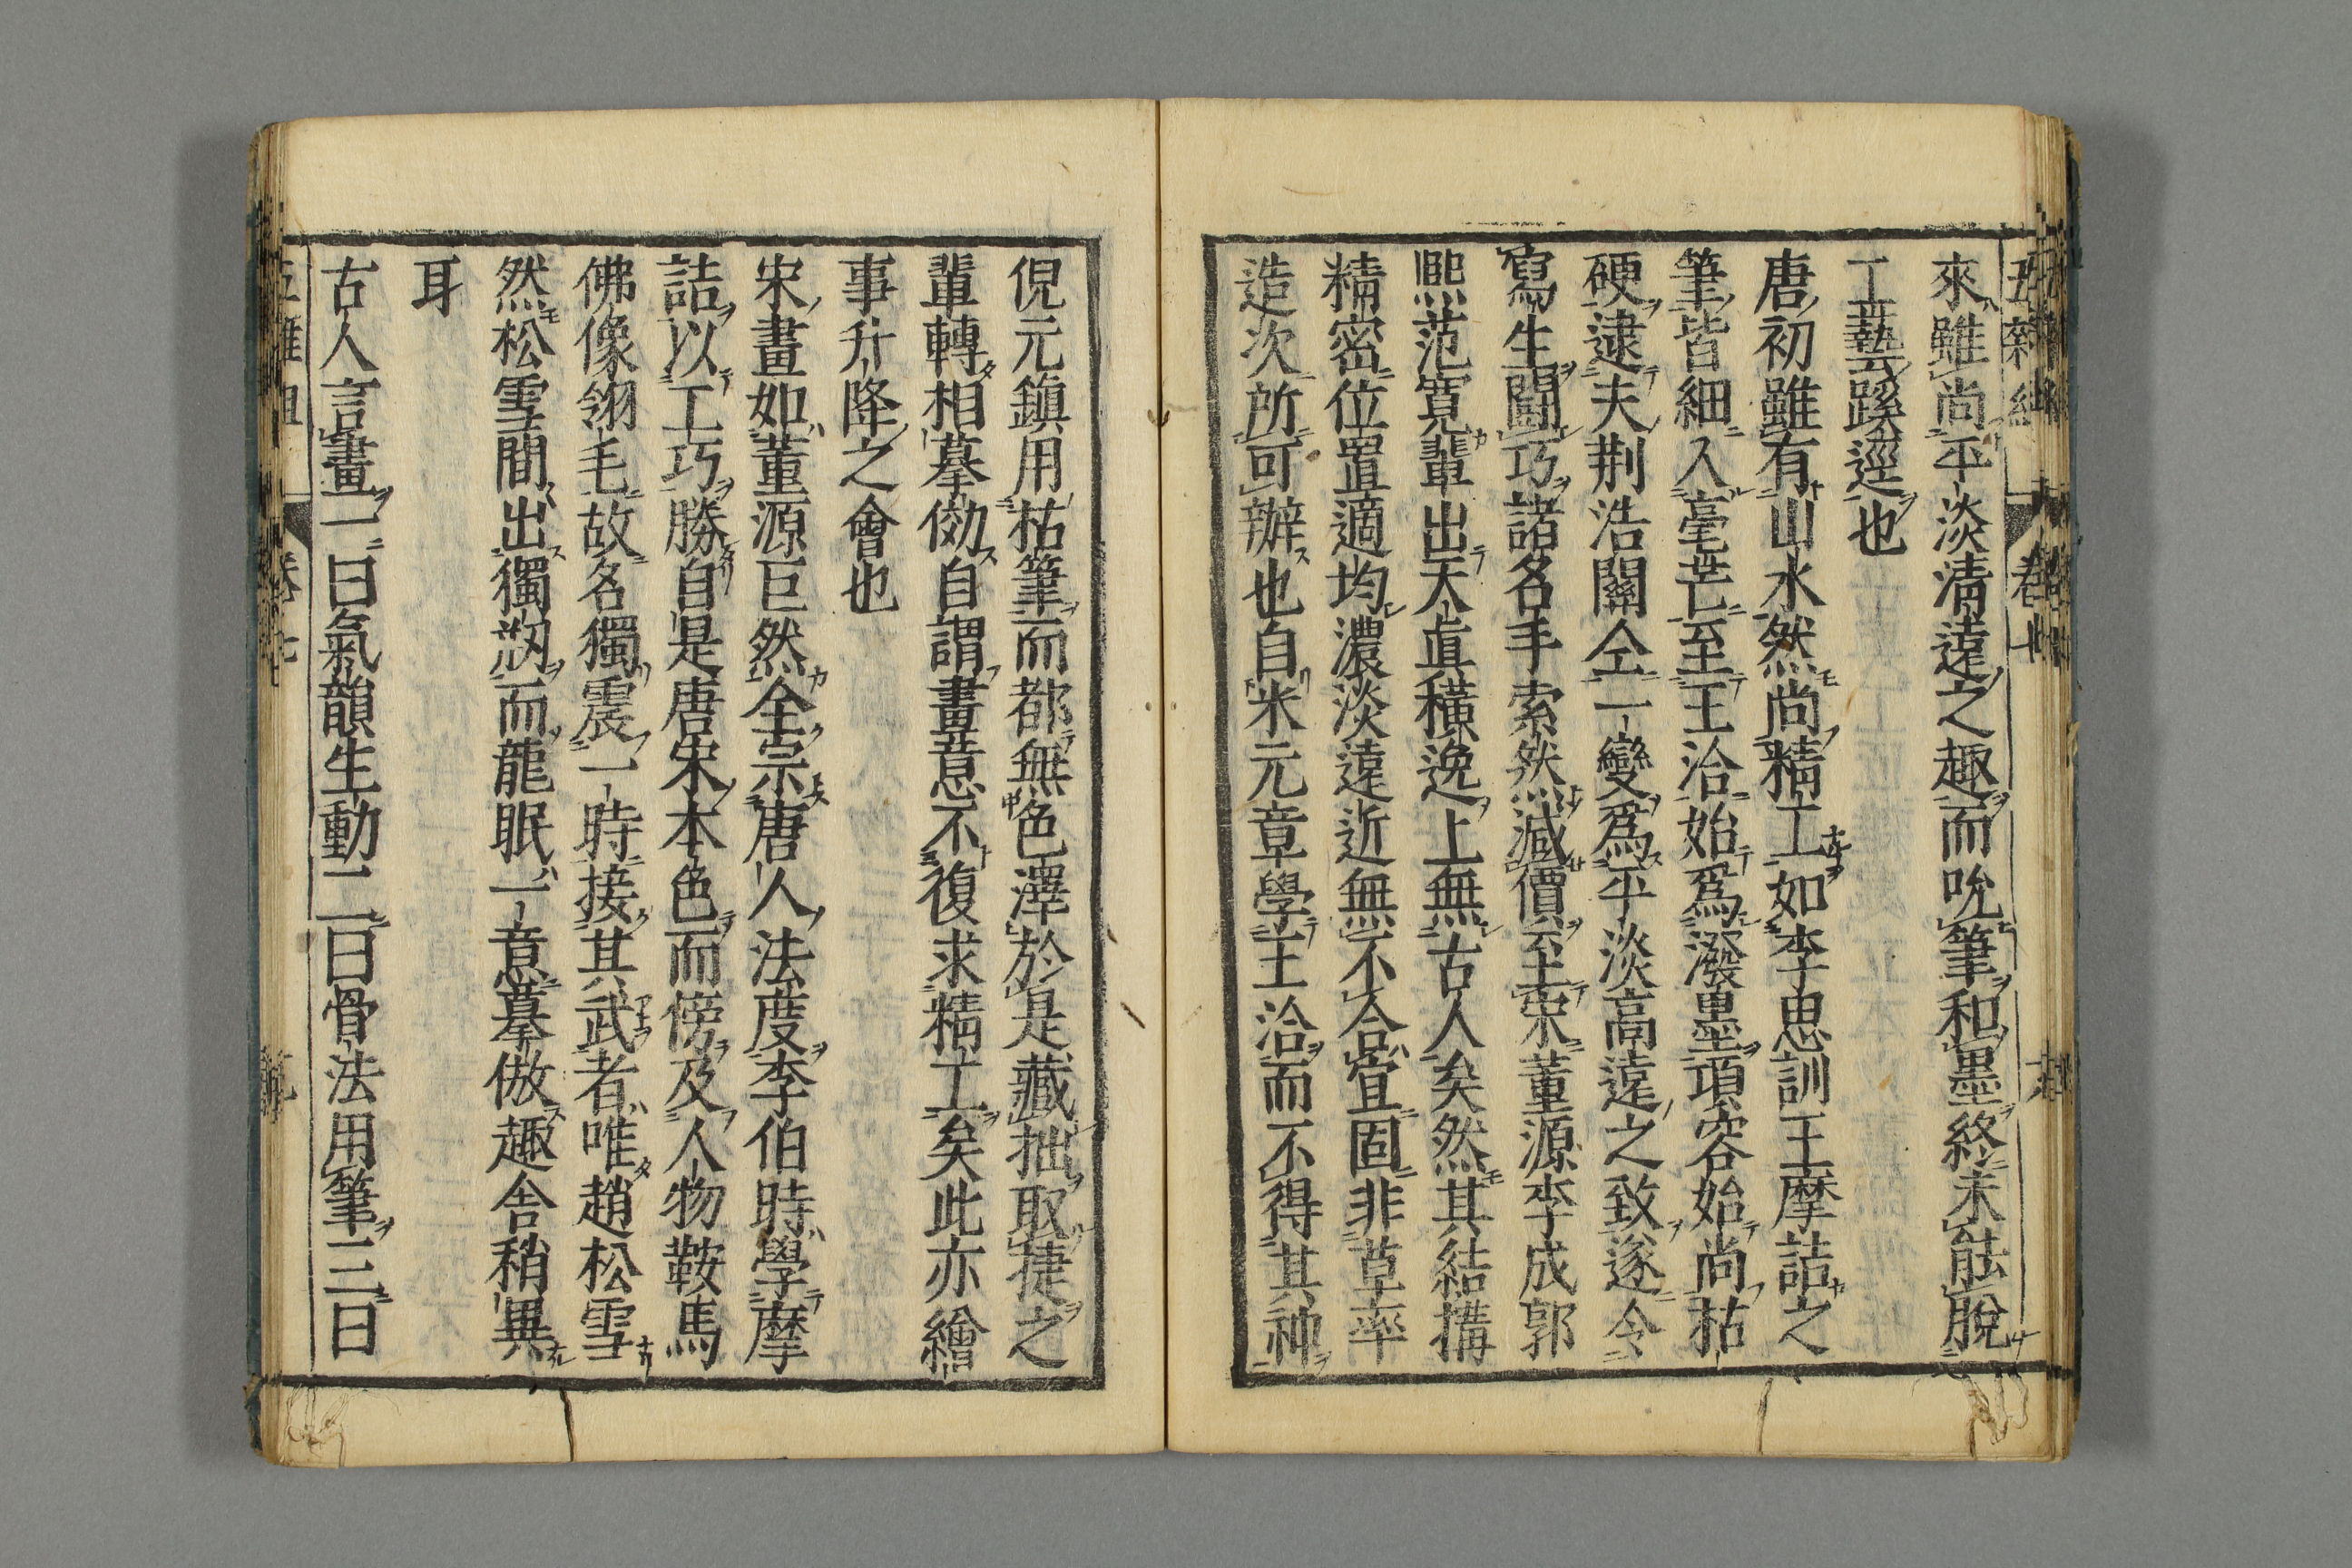 來雖尚平淡淸遠之趣而吮筆和墨終未能脫
工藝蹊逕也
唐初雖有山水然尚精工如李思訓王摩詰之
筆皆細入毫芒至王洽始爲潑墨項容始尚枯
硬逮夫荆浩關仝一變爲平淡高遠之致遂令
寫生鬪巧諸名手索然減價至宋董源李成郭
熙范寬輩出天眞橫逸上無古人矣然其結搆
精密位置適均濃淡遠近無不合宜固非草率
造次所可辦也自米元章學王洽而不得其神
倪元鎭用枯筆而都無色澤於是藏拙取捷之
輩轉相摹倣自謂畫意不復求精工矣此亦繪
事升降之會也
宋畫如董源巨然全宗唐人法度李伯時學摩
詰以工巧勝自是唐宋本色而傍及人物鞍馬
佛像翎毛故名獨震一時接其武者唯趙松雪
然松雪間出獨剏而龍眠一意摹倣趣舍稍異
耳
古人言畫一曰氣韻生動二曰骨法用筆三曰